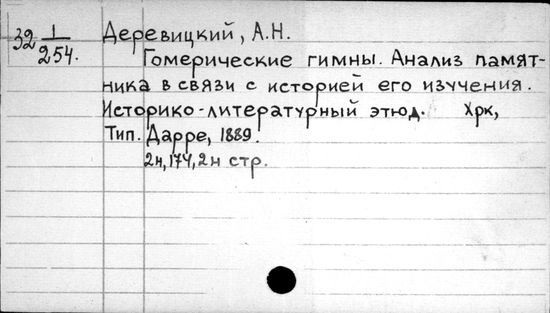 32 1/254.
Деревицкий, А.Н.
Гомерические гимны. Анализ памят-
ника в связи с историей его изучения.
Историко-литературный этюд. Хрк,
Тип. Дарре, 1889.
2н, 174, 2н стр.